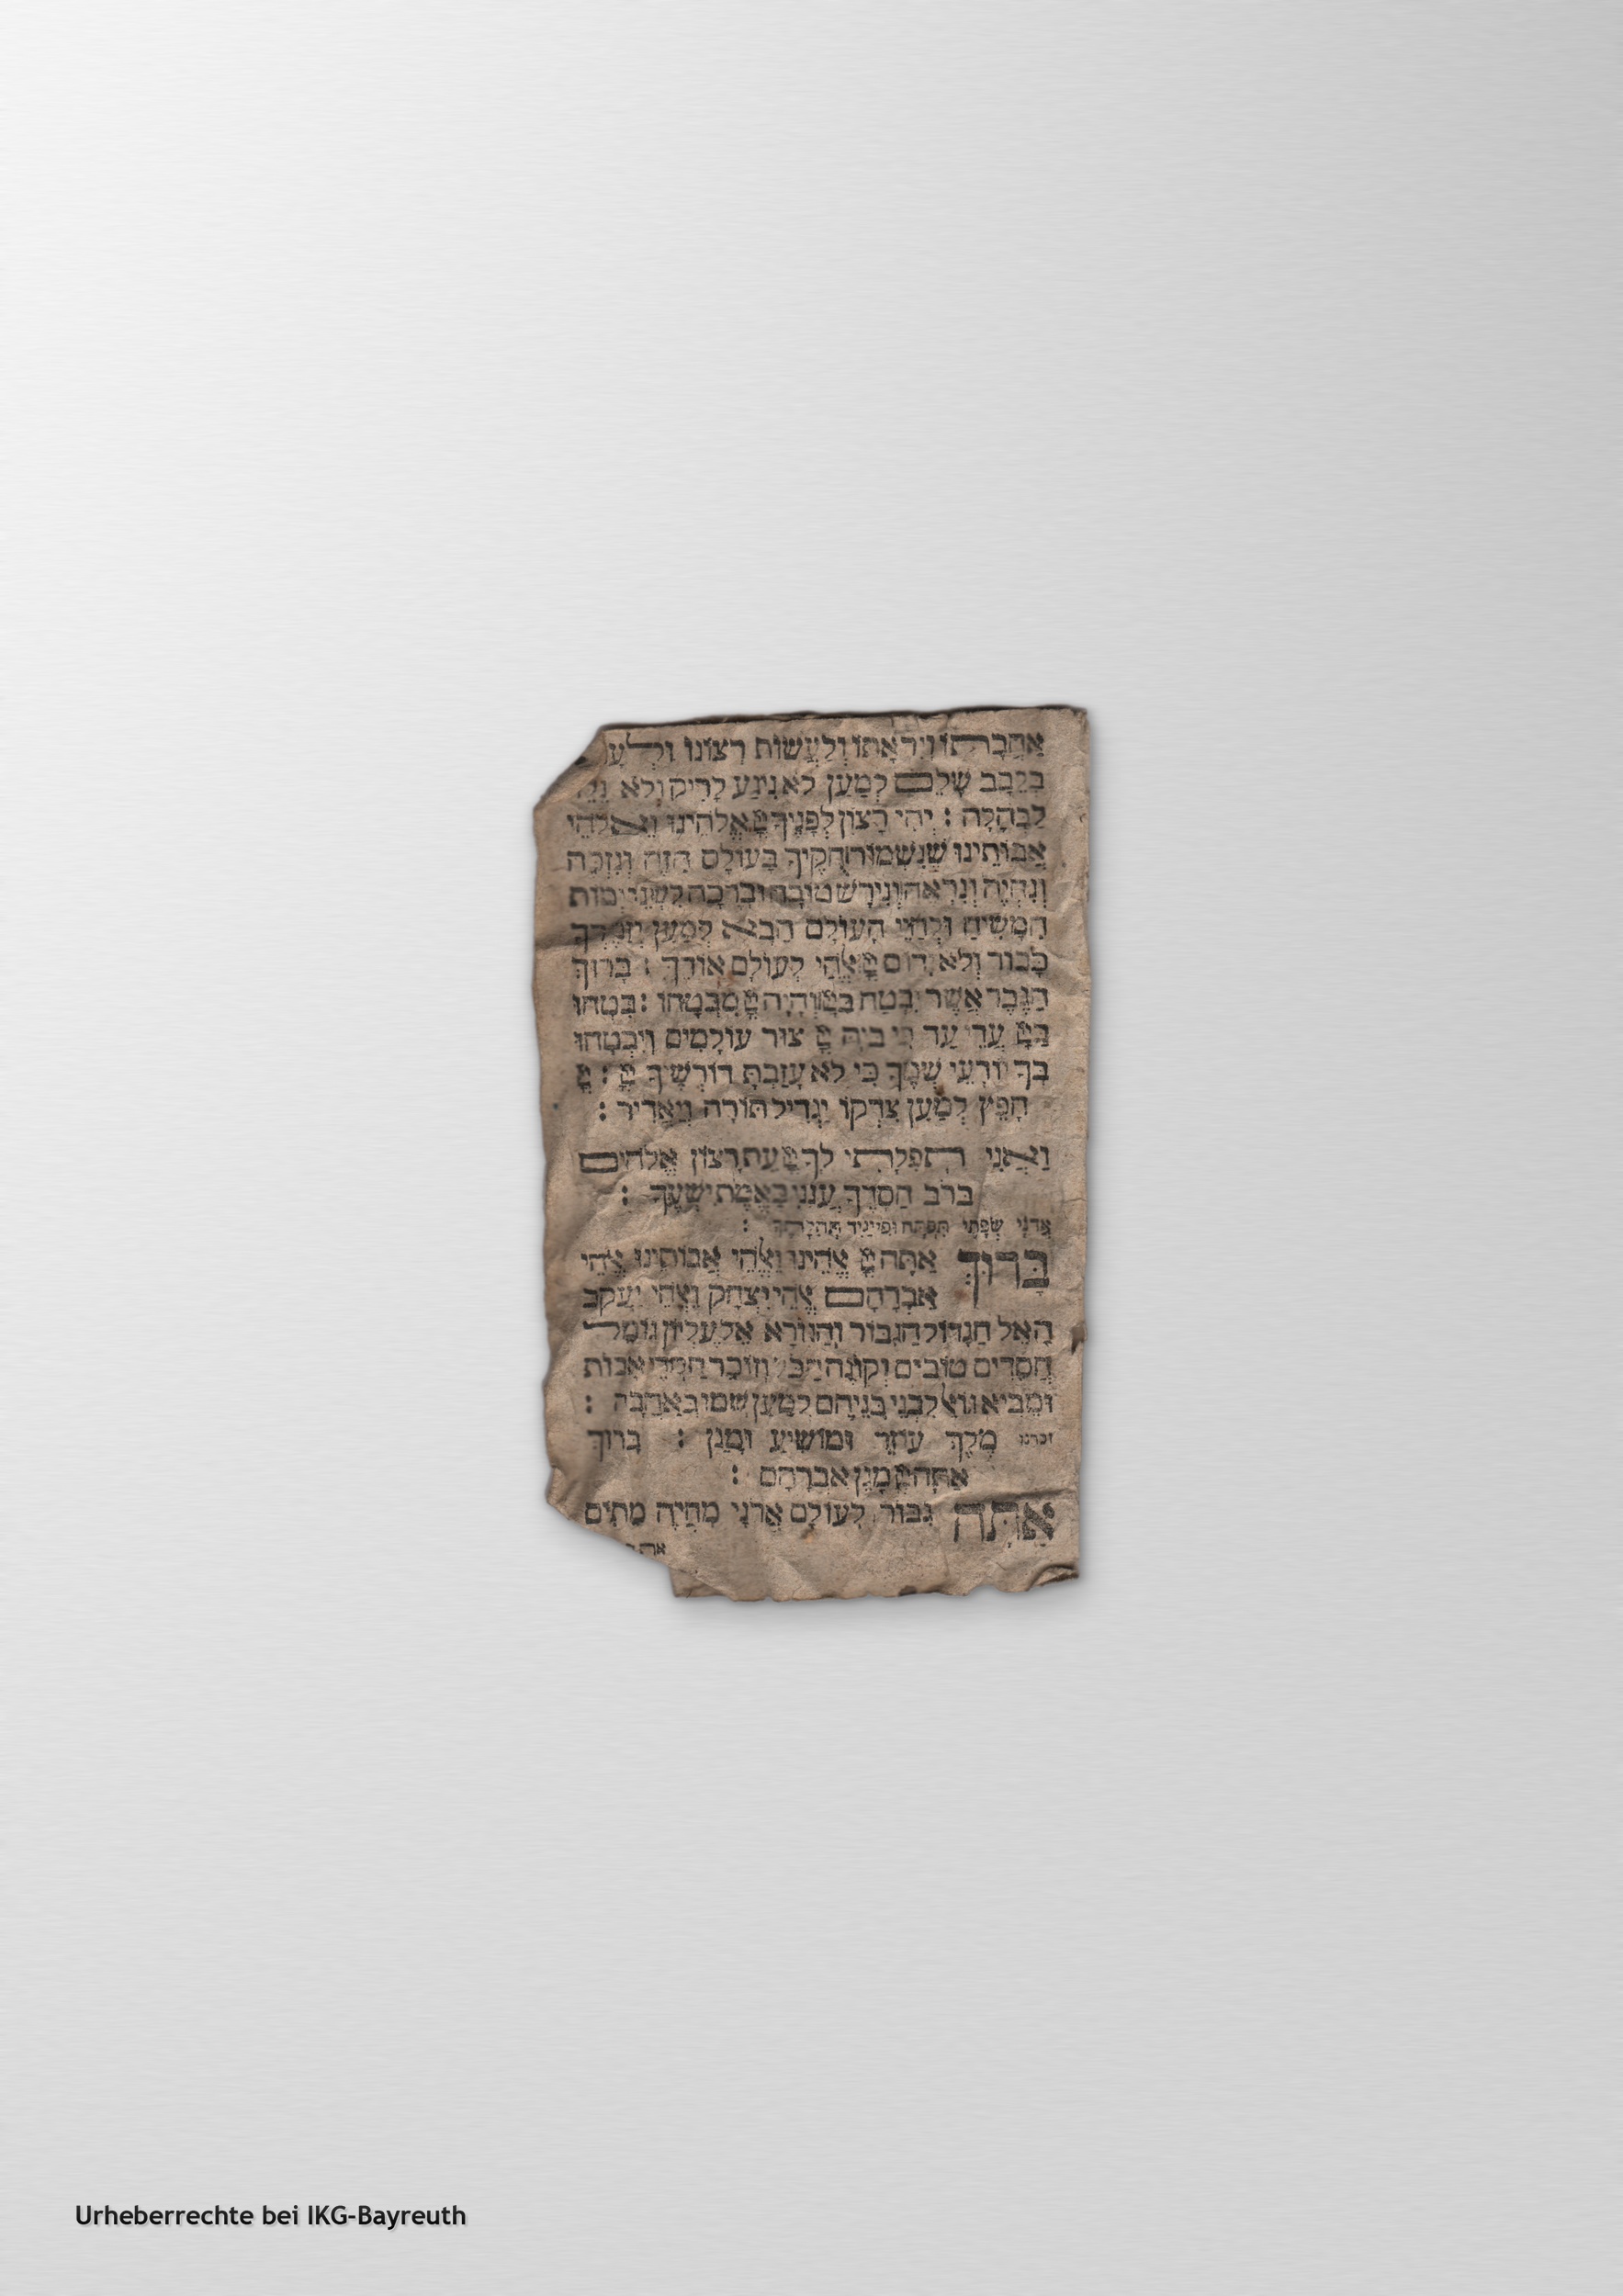 אַהֲבָתוֹ וְיִרְאָתוֹ וְלַעֲשׂוֹת רְצוֹנוֹ
בְּלֵבָב שָׁלֵם לְמַעַן לֹא נִיגַע לָרִיק וְלֹא נֵלֵד
לַבֶּהָלָה : יְהִי רָצוֹן לְפָנֶיךָ יְיָ אֱלֹהֵינוּ וֵאלֹהֵי
אֲבוֹתֵינוּ שֶׁנִּשְׁמוֹר חֻקֶּיךָ בָּעוֹלָם הַזֶּה וְנִזְכֶּה
וְנִחְיֶה וְנִרְאֶה וְנִירַשׁ טוֹבָה וּבְרָכָה לִשְׁנֵי יְמוֹת
הַמָּשִׁיחַ וּלְחַיֵּי הָעוֹלָם הַבָּא לְמַעַן יְזַמֶּרְךָ
כָּבוֹד וְלֹא יִדּוֹם יְיָ אֱלֹהַי לְעוֹלָם אוֹדֶךָּ : בָּרוּךְ
הַגֶּבֶר אֲשֶׁר יִבְטַח בַּייָ וְהָיָה יְיָ מִבְטַחוֹ : בִּטְחוּ
בַייָ עֲדֵי עַד כִּי בְיָהּ יְיָ צוּר עוֹלָמִים וְיִבְטְחוּ
בְךָ יוֹדְעֵי שְׁמֶךָ כִּי לֹא עָזַבְתָּ דוֹרְשֶׁיךָ יְיָ : יְיָ
חָפֵץ לְמַעַן צִדְקוֹ יַגְדִּיל תּוֹרָה וְיַאְדִּיר :
וַאֲנִי תְפִלָּתִי לְךָ יְיָ עֵת רָצוֹן אֱלֹהִים
בְּרֹב חַסְדֶּךָ עֲנֵנִי בֶּאֱמֶת יִשְׁעֶךָ :
אֲדֹנָי שְׂפָתַי תִּפְתָּח וּפִי יַגִּיד תְּהִלָּתֶךָ :
בָּרוּךְ אַתָּה יְיָ אֱלֹהֵינוּ וֵאלֹהֵי אֲבוֹתֵינוּ אֱלֹהֵי
אַבְרָהָם אֱלֹהֵי יִצְחָק וֵאלֹהֵי יַעֲקֹב
הָאֵל הַגָּדוֹל הַגִּבּוֹר וְהַנּוֹרָא אֵל עֶלְיוֹן גּוֹמֵל
חֲסָדִים טוֹבִים וְקוֹנֵה הַכֹּל וְזוֹכֵר חַסְדֵי אָבוֹת
וּמֵבִיא גוֹאֵל לִבְנֵי בְנֵיהֶם לְמַעַן שְׁמוֹ בְּאַהֲבָה :
זכרנו מֶלֶךְ עוֹזֵר וּמוֹשִׁיעַ וּמָגֵן : בָּרוּךְ
אַתָּה יְיָ מָגֵן אַבְרָהָם :
אַתָּה גִּבּוֹר לְעוֹלָם אֲדֹנָי מְחַיֵּה מֵתִים
Urheberrechte bei IKG-Bayreuth